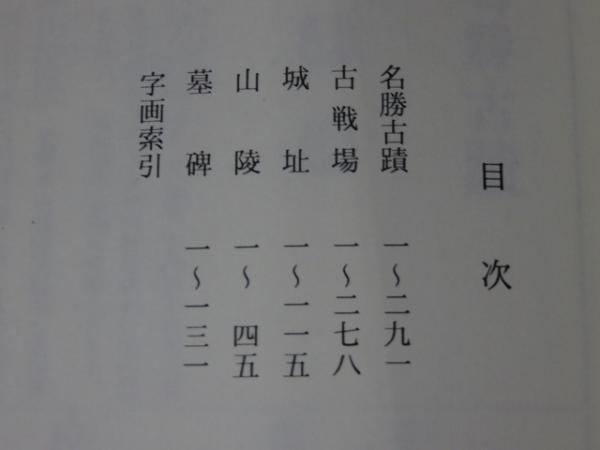 目次
名勝古蹟 一〜二九一
古戦場 一〜二七八
城址 一〜一一五
山陵 一〜四五
墓碑 一〜一三一
字画索引